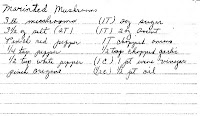 Marinted Mushrooms
3 lb mushrooms (1T) 2oz sugar
3½ oz salt (2T) (1T) 2oz
red pepper 1T chopped onions
¼ tsp pepper ½ tsp chopped garlic
½ tsp white pepper (1C) 1 pt wine vinegar
pinch oregino (1c) ½ pt oil